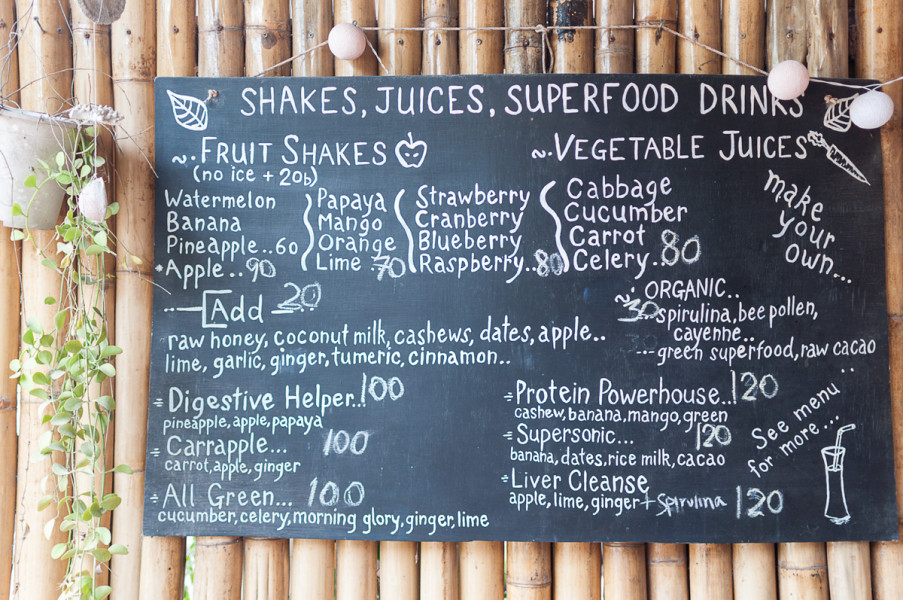 SHAKES, JUICES, SUPERFOOD DRINKS
~.FRUIT SHAKES
(no ice + 20b)
Watermelon
Banana
Pineapple..60
•Apple..90
Papaya
Mango
Orange
Lime .70
Strawberry
Cranberry
Blueberry
Raspberry..80
~.VEGETABLE JUICES
Cabbage
Cucumber
Carrot
Celery..80
make
your
own...
Add 20
raw honey, coconut milk, cashews, dates, apple..
lime, garlic, ginger, tumeric, cinnamon..
~. ORGANIC..
30 spirulina, bee pollen,
cayenne..
---green superfood, raw cacao
Digestive Helper..100
pineapple, apple, papaya
Carrapple... 100
carrot, apple, ginger
All Green... 100
cucumber, celery, morning glory, ginger, lime
Protein Powerhouse..120
cashew, banana, mango, green
Supersonic... 120
banana, dates, rice milk, cacao
Liver Cleanse
apple, lime, ginger + Spirulina 120
See menu ..
for more...